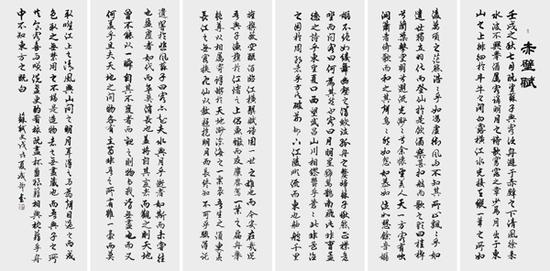 赤壁賦
壬戌之秋七月既望蘇子與客泛舟遊於赤壁之下清風徐來
水波不興舉酒屬客誦明月之詩歌窈窕之章少焉月出於東
山之上徘徊於斗牛之間白露橫江水光接天縱一葦之所如
凌萬頃之茫然浩浩乎如馮虛御風而不知其所止飄飄乎如
遺世獨立羽化而登仙於是飲酒樂甚扣舷而歌之歌曰桂棹
兮蘭槳擊空明兮溯流光渺渺兮予懷望美人兮天一方客有吹
洞簫者倚歌而和之其聲嗚嗚然如怨如慕如泣如訴餘音嫋
嫋不絕如縷舞幽壑之潛蛟泣孤舟之嫠婦蘇子愀然正襟危
坐而問客曰何為其然也客曰月明星稀烏鵲南飛此非曹孟
德之詩乎東望夏口西望武昌山川相繆鬱乎蒼蒼此非孟德
之困於周郎者乎方其破荊州下江陵順流而東也舳艫千里
旌旗蔽空釃酒臨江橫槊賦詩固一世之雄也而今安在哉況
吾與子漁樵於江渚之上侶魚蝦而友麋鹿駕一葉之扁舟舉
匏尊以相屬寄蜉蝣於天地渺滄海之一粟哀吾生之須臾羨
長江之無窮挾飛仙以遨遊抱明月而長終知不可乎驟得託
遺響於悲風蘇子曰客亦知夫水與月乎逝者如斯而未嘗往
也盈虛者如彼而卒莫消長也蓋將自其變者而觀之則天地
曾不能以一瞬自其不變者而觀之則物與我皆無盡也而又
何羨乎且夫天地之間物各有主苟非吾之所有雖一毫而莫
取唯江上之清風與山間之明月耳得之而為聲目遇之而成
色取之無禁用之不竭是造物者之無盡藏也而吾與子之所
共適客喜而笑洗盞更酌肴核既盡杯盤狼藉相與枕藉乎舟
中不知東方之既白
蘇軾文戊戌夏